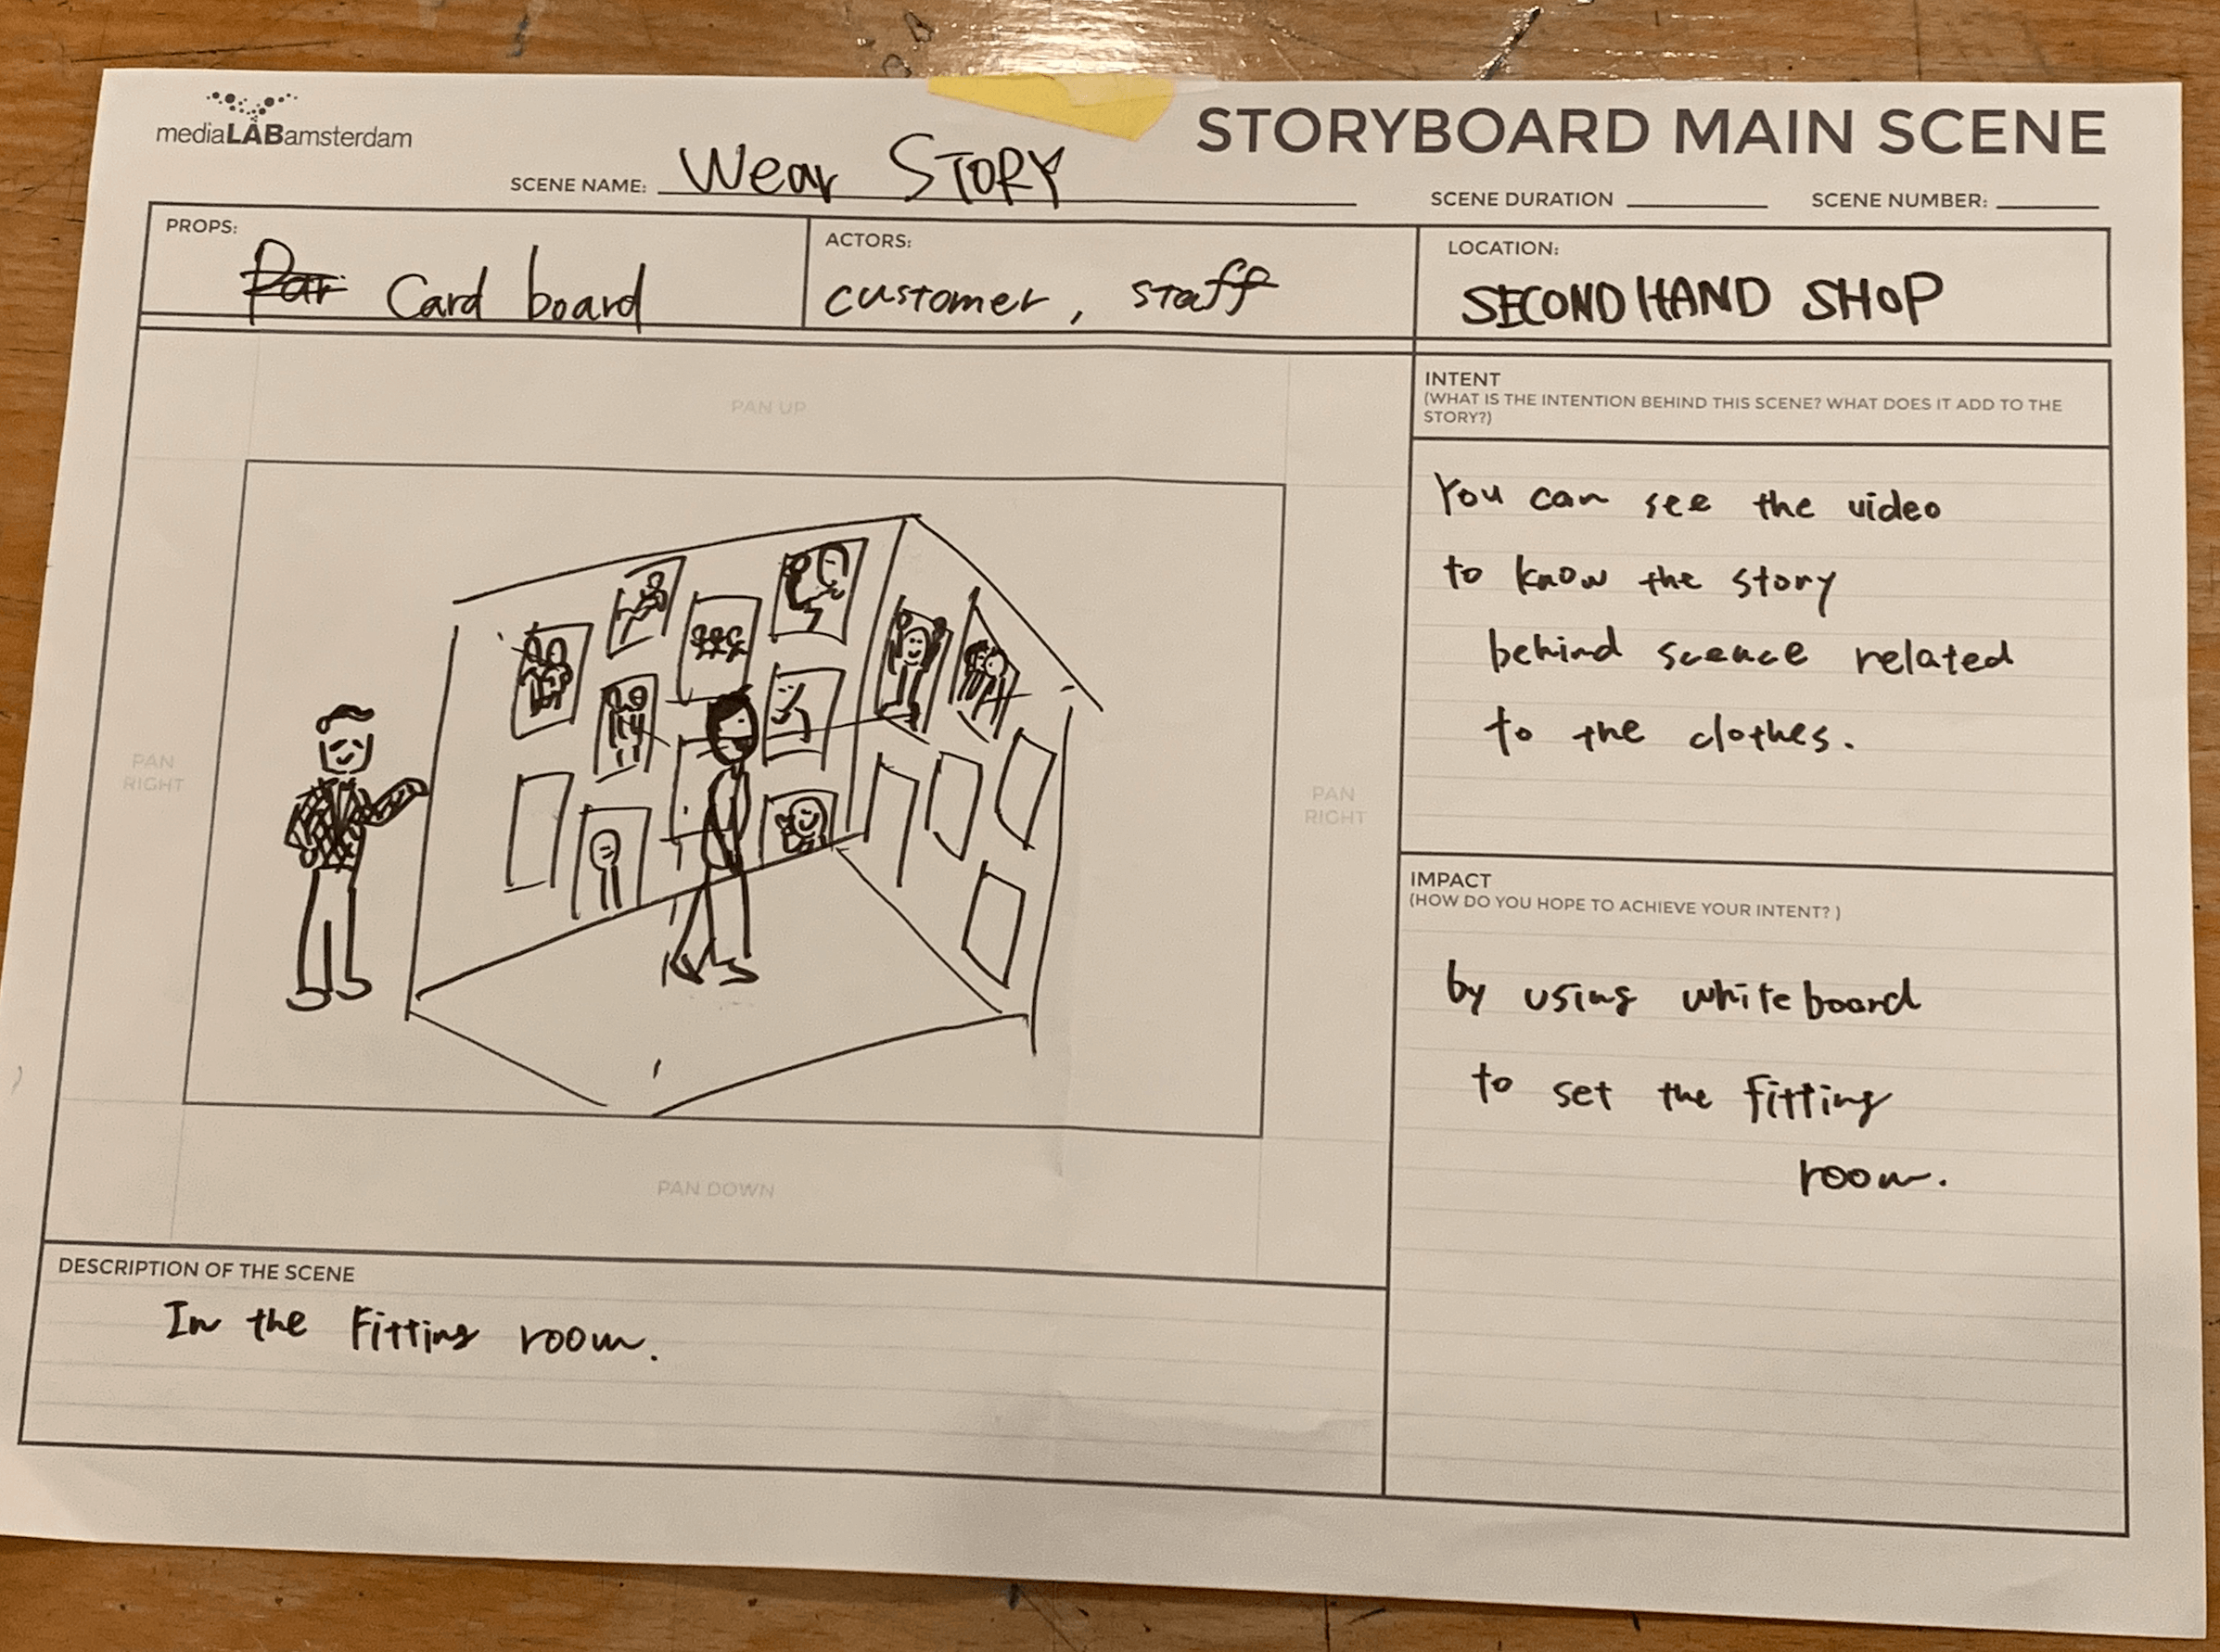 mediaLABamsterdam
STORYBOARD MAIN SCENE
SCENE NAME: Wear STORY
SCENE DURATION
SCENE NUMBER:
PROPS:
Card board
ACTORS:
customer, staff
LOCATION:
SECOND HAND SHOP
INTENT
(WHAT IS THE INTENTION BEHIND THIS SCENE? WHAT DOES IT ADD TO THE
STORY?)
You can see the video
to know the story
behind scence related
to the clothes.
PAN UP
PAN
RIGHT
PAN
RIGHT
PAN DOWN
IMPACT
(HOW DO YOU HOPE TO ACHIEVE YOUR INTENT? )
by using whiteboard
to set the fitting
room.
DESCRIPTION OF THE SCENE
In the Fitting room.